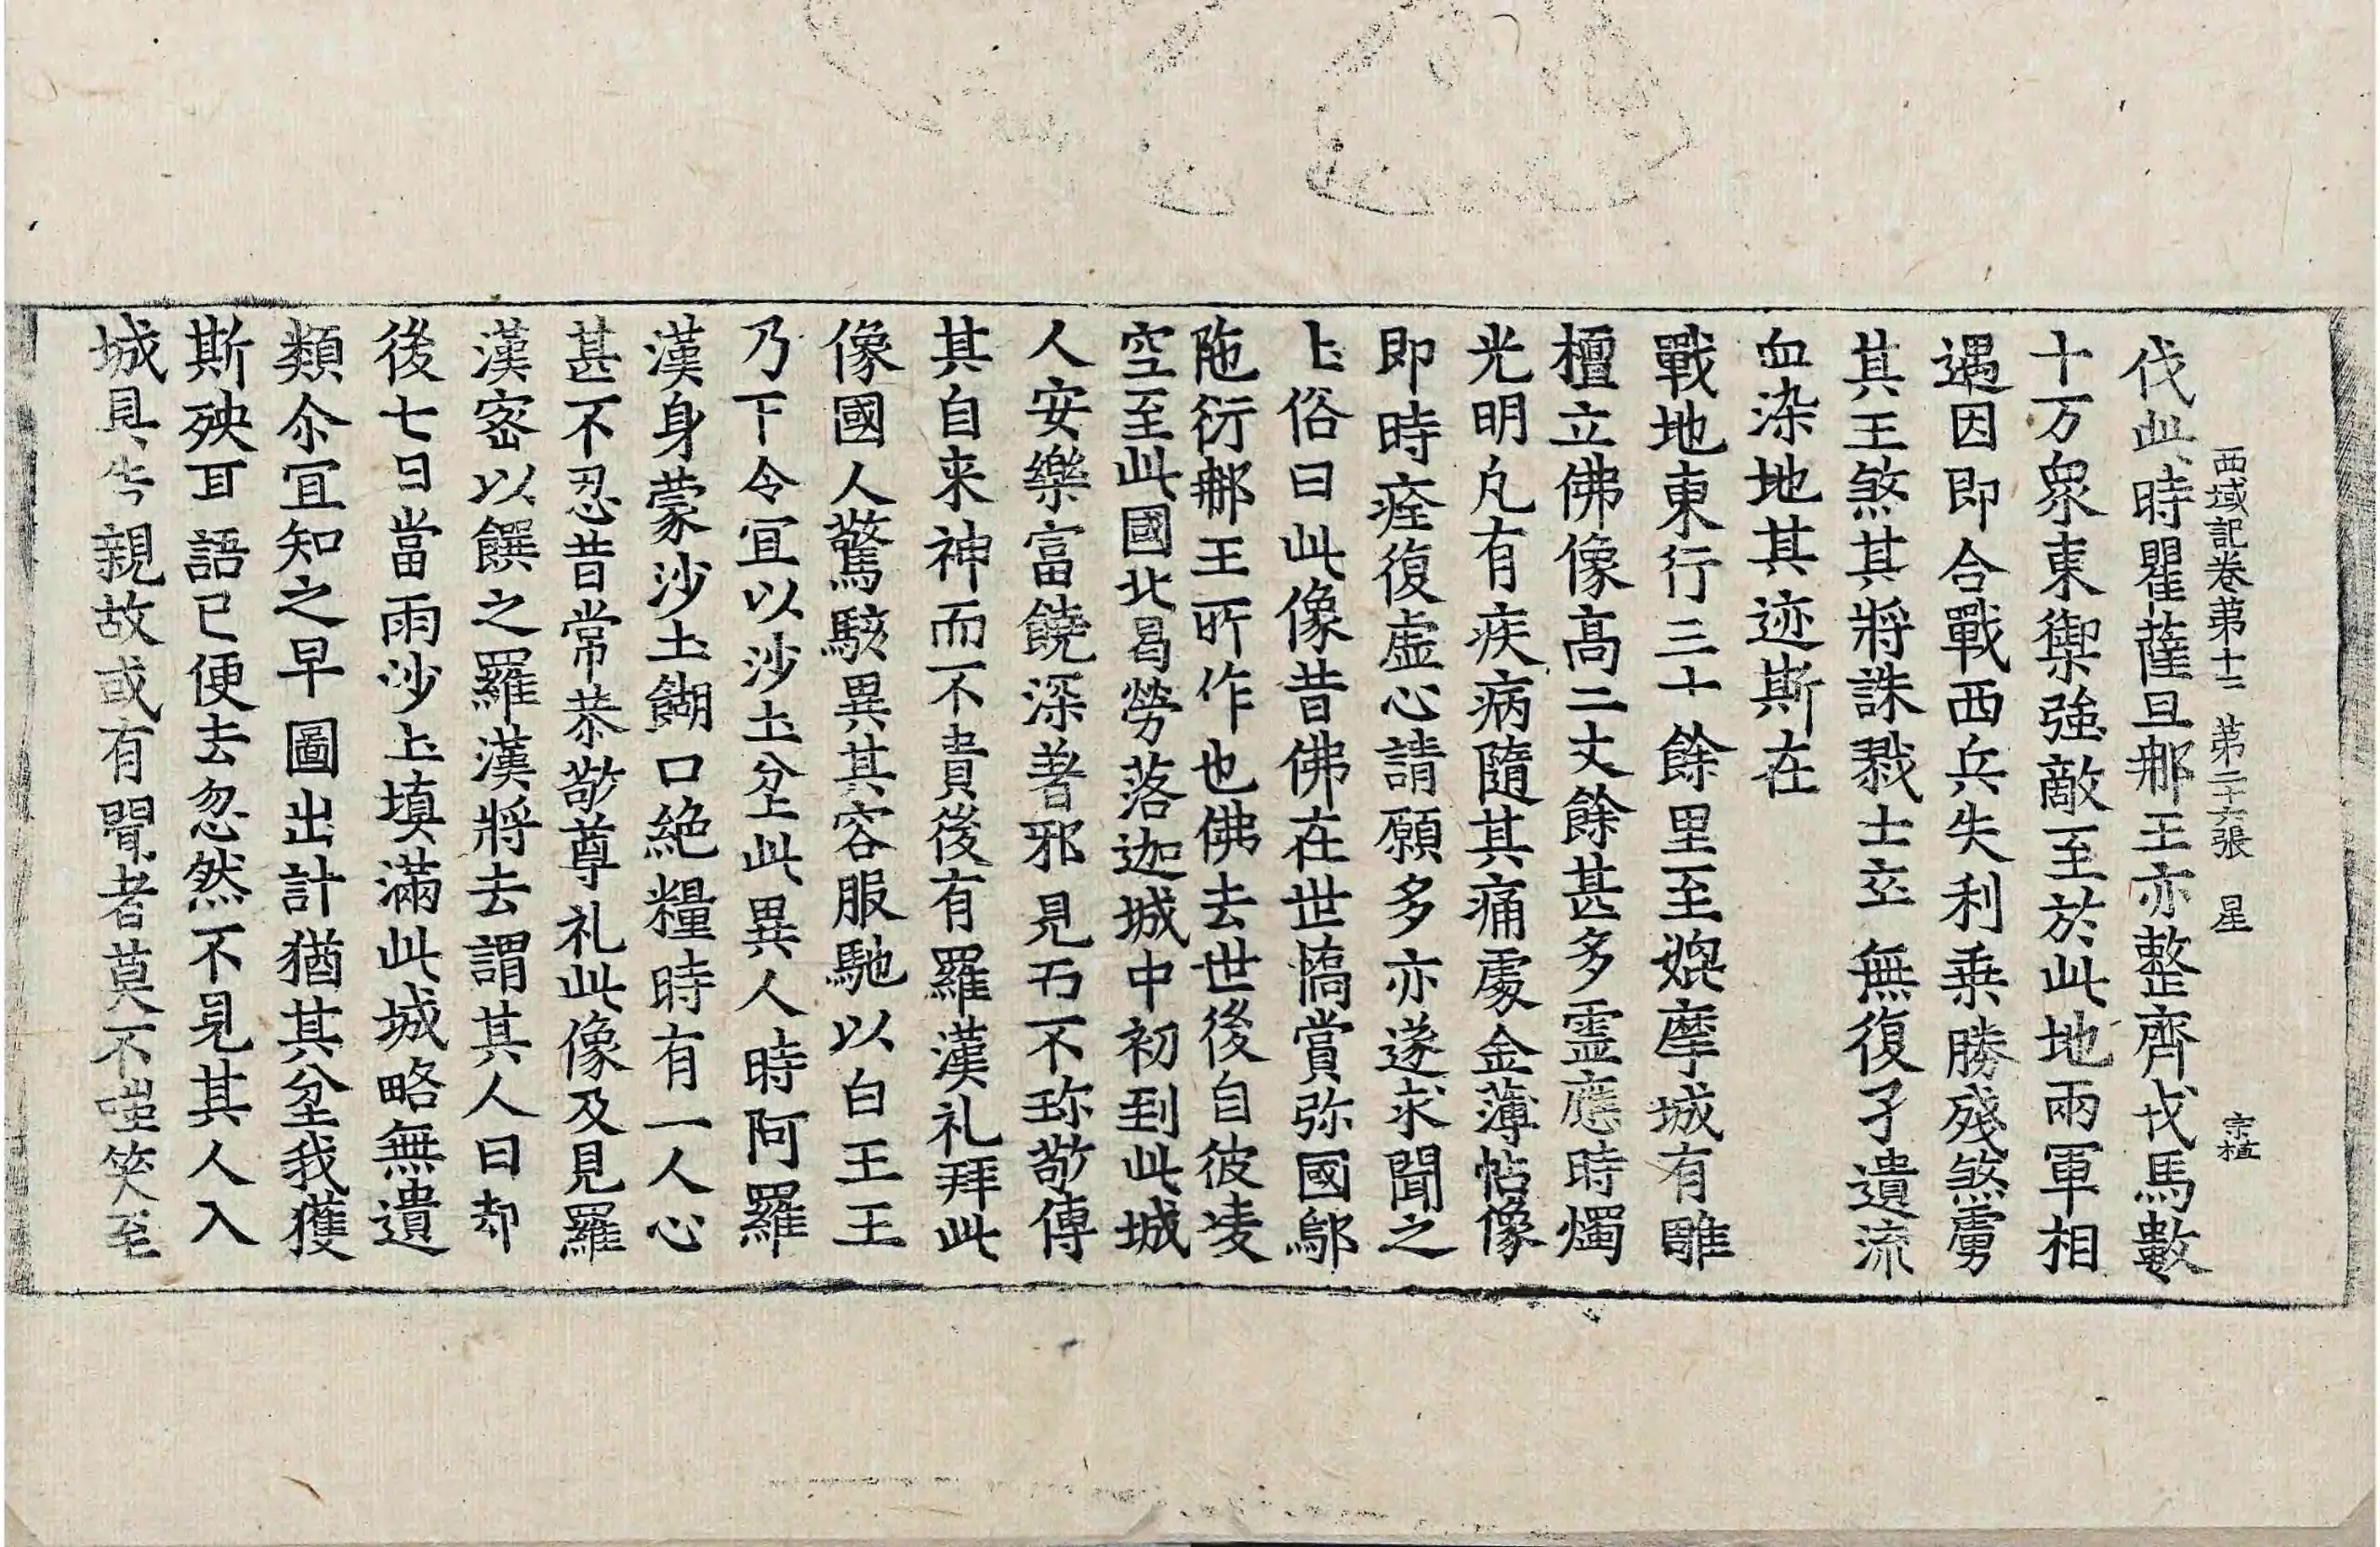 西域記卷第十二 第二十六張 星 宗植
伐此時瞿薩旦那王亦整齊戎馬數
十万衆東禦強敵至於此地兩軍相
遇因即合戰西兵失利乗勝殘煞虜
其王煞其將誅戮士卒無復孑遺流
血染地其迹斯在
戰地東行三十餘里至媲摩城有雕
檀立佛像高二丈餘甚多霊應時燭
光明凡有疾病隨其痛處金薄帖像
即時痊復虛心請願多亦遂求聞之
圡俗曰此像昔佛在世憍賞弥國鄔
陁衍那王所作也佛去世後自彼凌
空至此國北曷勞落迦城中初到此城
人安樂富饒深著邪見而不珎敬傳
其自来神而不貴後有羅漢礼拜此
像國人驚駭異其容服馳以白王王
乃下令宜以沙圡坌此異人時阿羅
漢身蒙沙圡餬口絶糧時有一人心
甚不忍昔常恭敬尊礼此像及見羅
漢密以饌之羅漢將去謂其人曰却
後七日當雨沙圡填滿此城略無遺
類尒宜知之早圖出計猶其坌我獲
斯殃耳語已便去忽然不見其人入
城具告親故或有聞者莫不嗤笑至